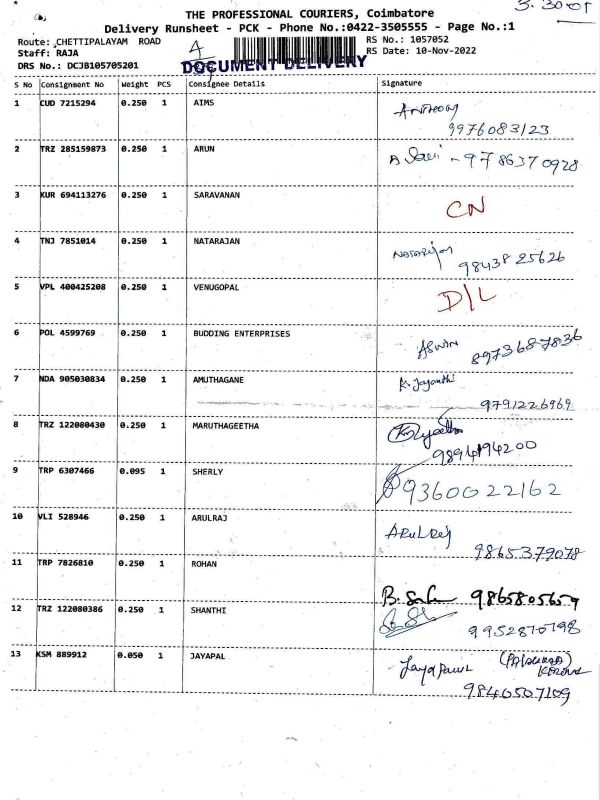 THE PROFESSIONAL COURIERS, Coimbatore
Delivery Runsheet - PCK - Phone No.:0422-3505555 - Page No.:1
Route: CHETTIPALAYAM ROAD RS No.: 1057052
Staff: RAJA RS Date: 10-Nov-2022
DRS No.: DCJB105705201 DOCUMENT DELIVERY
S No Consignment No Weight PCS Consignee Details Signature
1 CUD 7215294 0.250 1 AIMS ANTHONY
9976083123
2 TRZ 285159873 0.250 1 ARUN 9786370928
3 KUR 694113276 0.250 1 SARAVANAN CN
4 TNJ 7851014 0.250 1 NATARAJAN Natarajan
9843825626
5 VPL 400425208 0.250 1 VENUGOPAL D/L
6 POL 4599769 0.250 1 BUDDING ENTERPRISES ASWIN 8973687836
7 NDA 905030834 0.250 1 AMUTHAGANE K. Jayanthi
9791226969
8 TRZ 122080430 0.250 1 MARUTHAGEETHA
9894194200
9 TRP 6307466 0.095 1 SHERLY 9360022162
10 VLI 528946 0.250 1 ARULRAJ Arulraj
9865379078
11 TRP 7826810 0.250 1 ROHAN
9865805659
12 TRZ 122080386 0.250 1 SHANTHI
9952870798
13 KSM 889912 0.050 1 JAYAPAL
9840507109